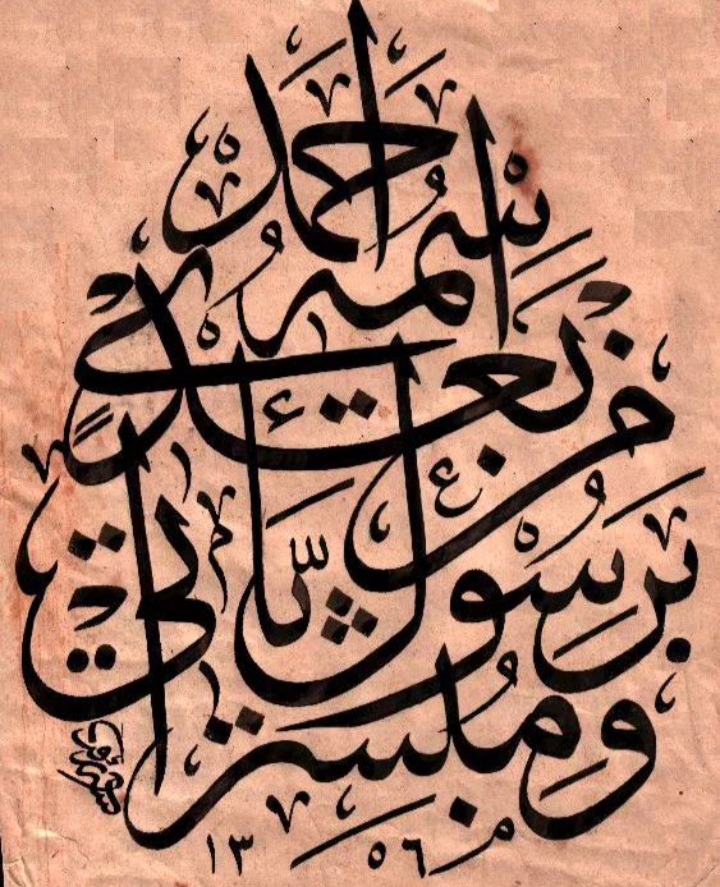 ومبشرا
برسول يأتي
من بعدي
اسمه
أحمد
١٣٥٦